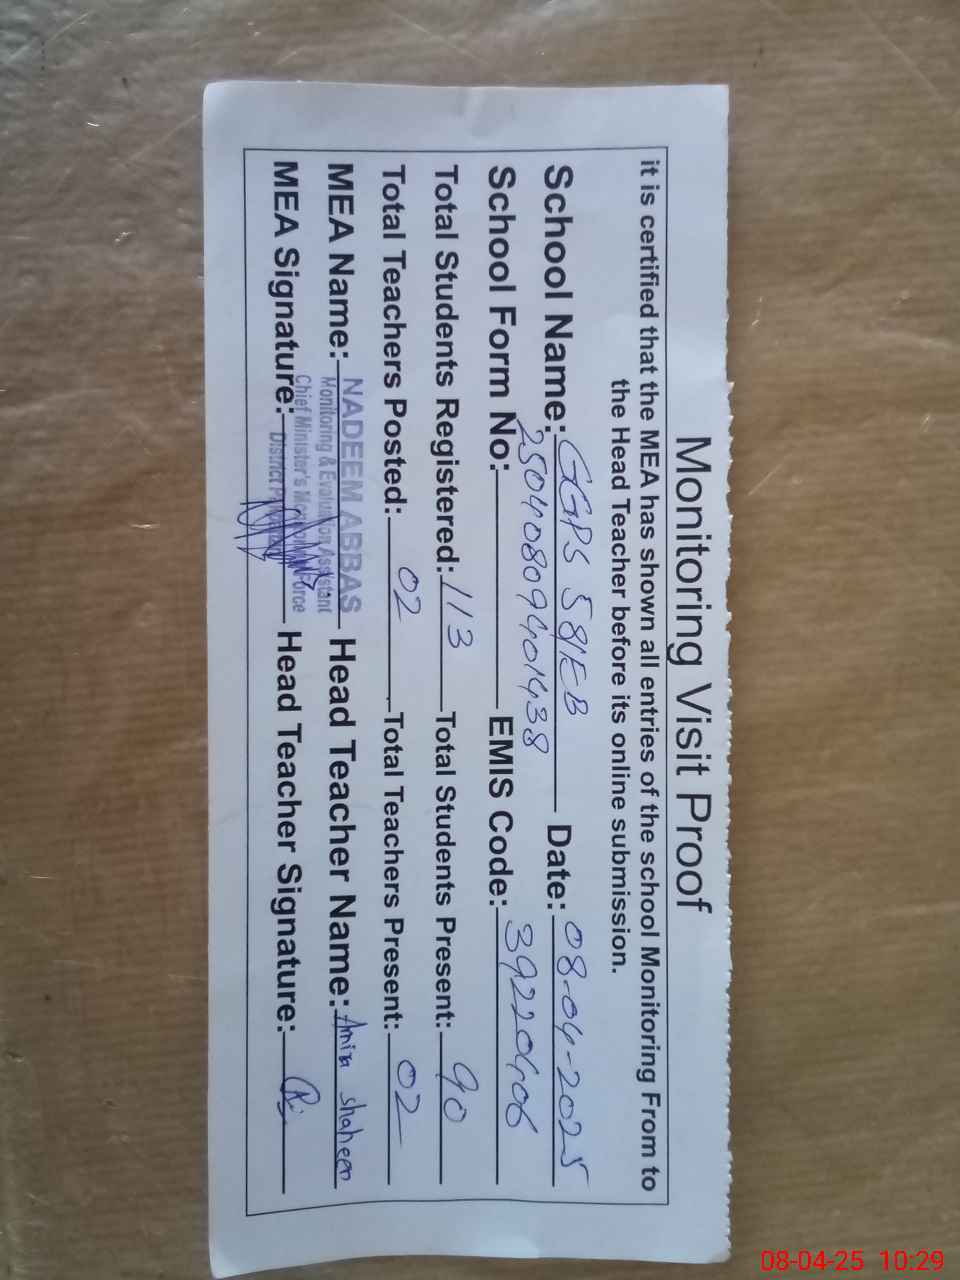 Monitoring Visit Proof
it is certified that the MEA has shown all entries of the school Monitoring From to
the Head Teacher before its online submission.
School Name: GGPS 581EB Date: 08-04-2025
School Form No: 25040809401438 EMIS Code: 39220406
Total Students Registered: 113 Total Students Present: 90
Total Teachers Posted: 02 Total Teachers Present: 02
MEA Name: NADEEM ABBAS Head Teacher Name: Amira shaheen
Monitoring & Evaluation Assistant
Chief Minister's Monitoring Force
MEA Signature: District Head Teacher Signature:
08-04-25 10:29